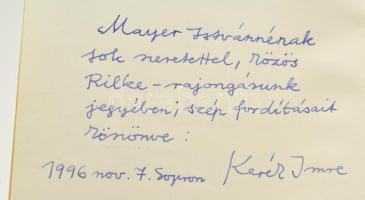 Mayer Istvánnénak
sok szeretettel, közös
Rilke-rajongásunk
jegyében, szép fordításait
köszönve:
1996 nov. 7. Sopron Kerék Imre